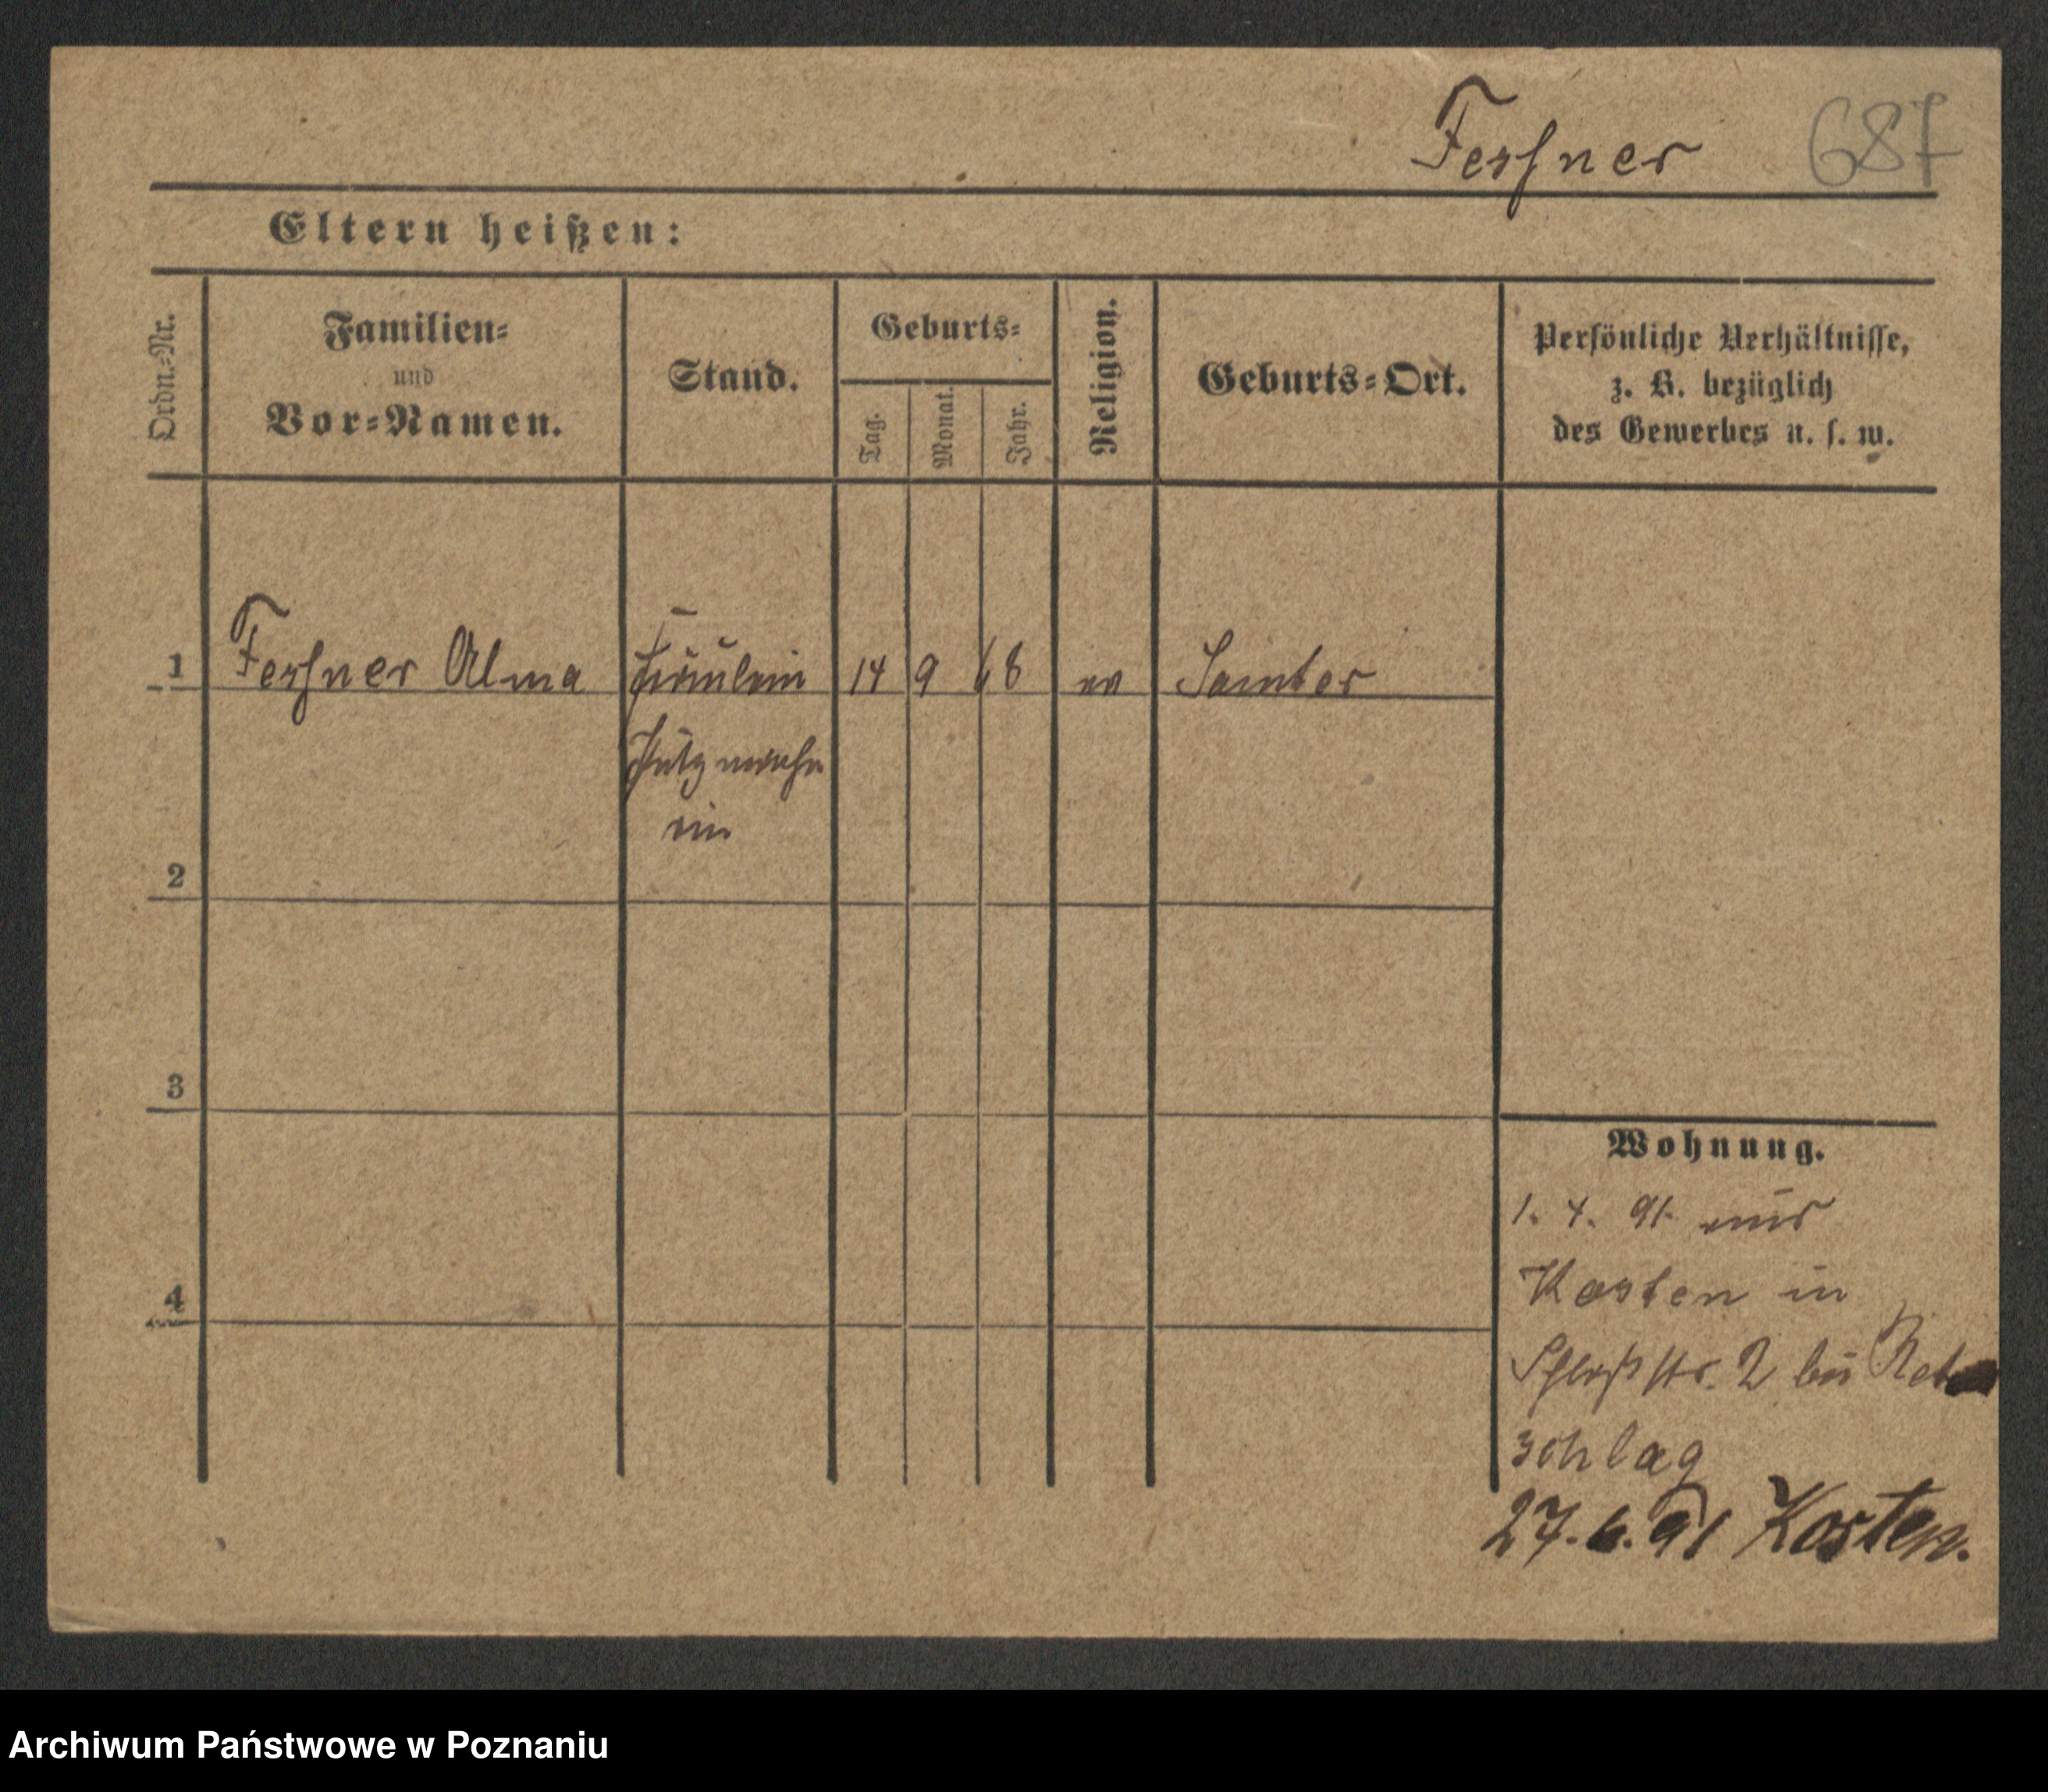 Feshner 687
Eltern heißen:
Ordn.=Nr.
Familien=
und
Vor=Namen.
Stand.
Geburts=
Tag.
Monat.
Jahr.
Religion.
Geburts=Ort.
Persönliche Verhältnisse,
z. B. bezüglich
des Gewerbes u. s. w.
1 Feshner Alma Fräulein 14 9 68 ev Samter
Putzmacher
in
2
3
4
Wohnung.
1. 4. 91. aus
Kosten in
Schloßstr. 2 bei
schlag
27. 6. 91 Kosten.
Archiwum Państwowe w Poznaniu